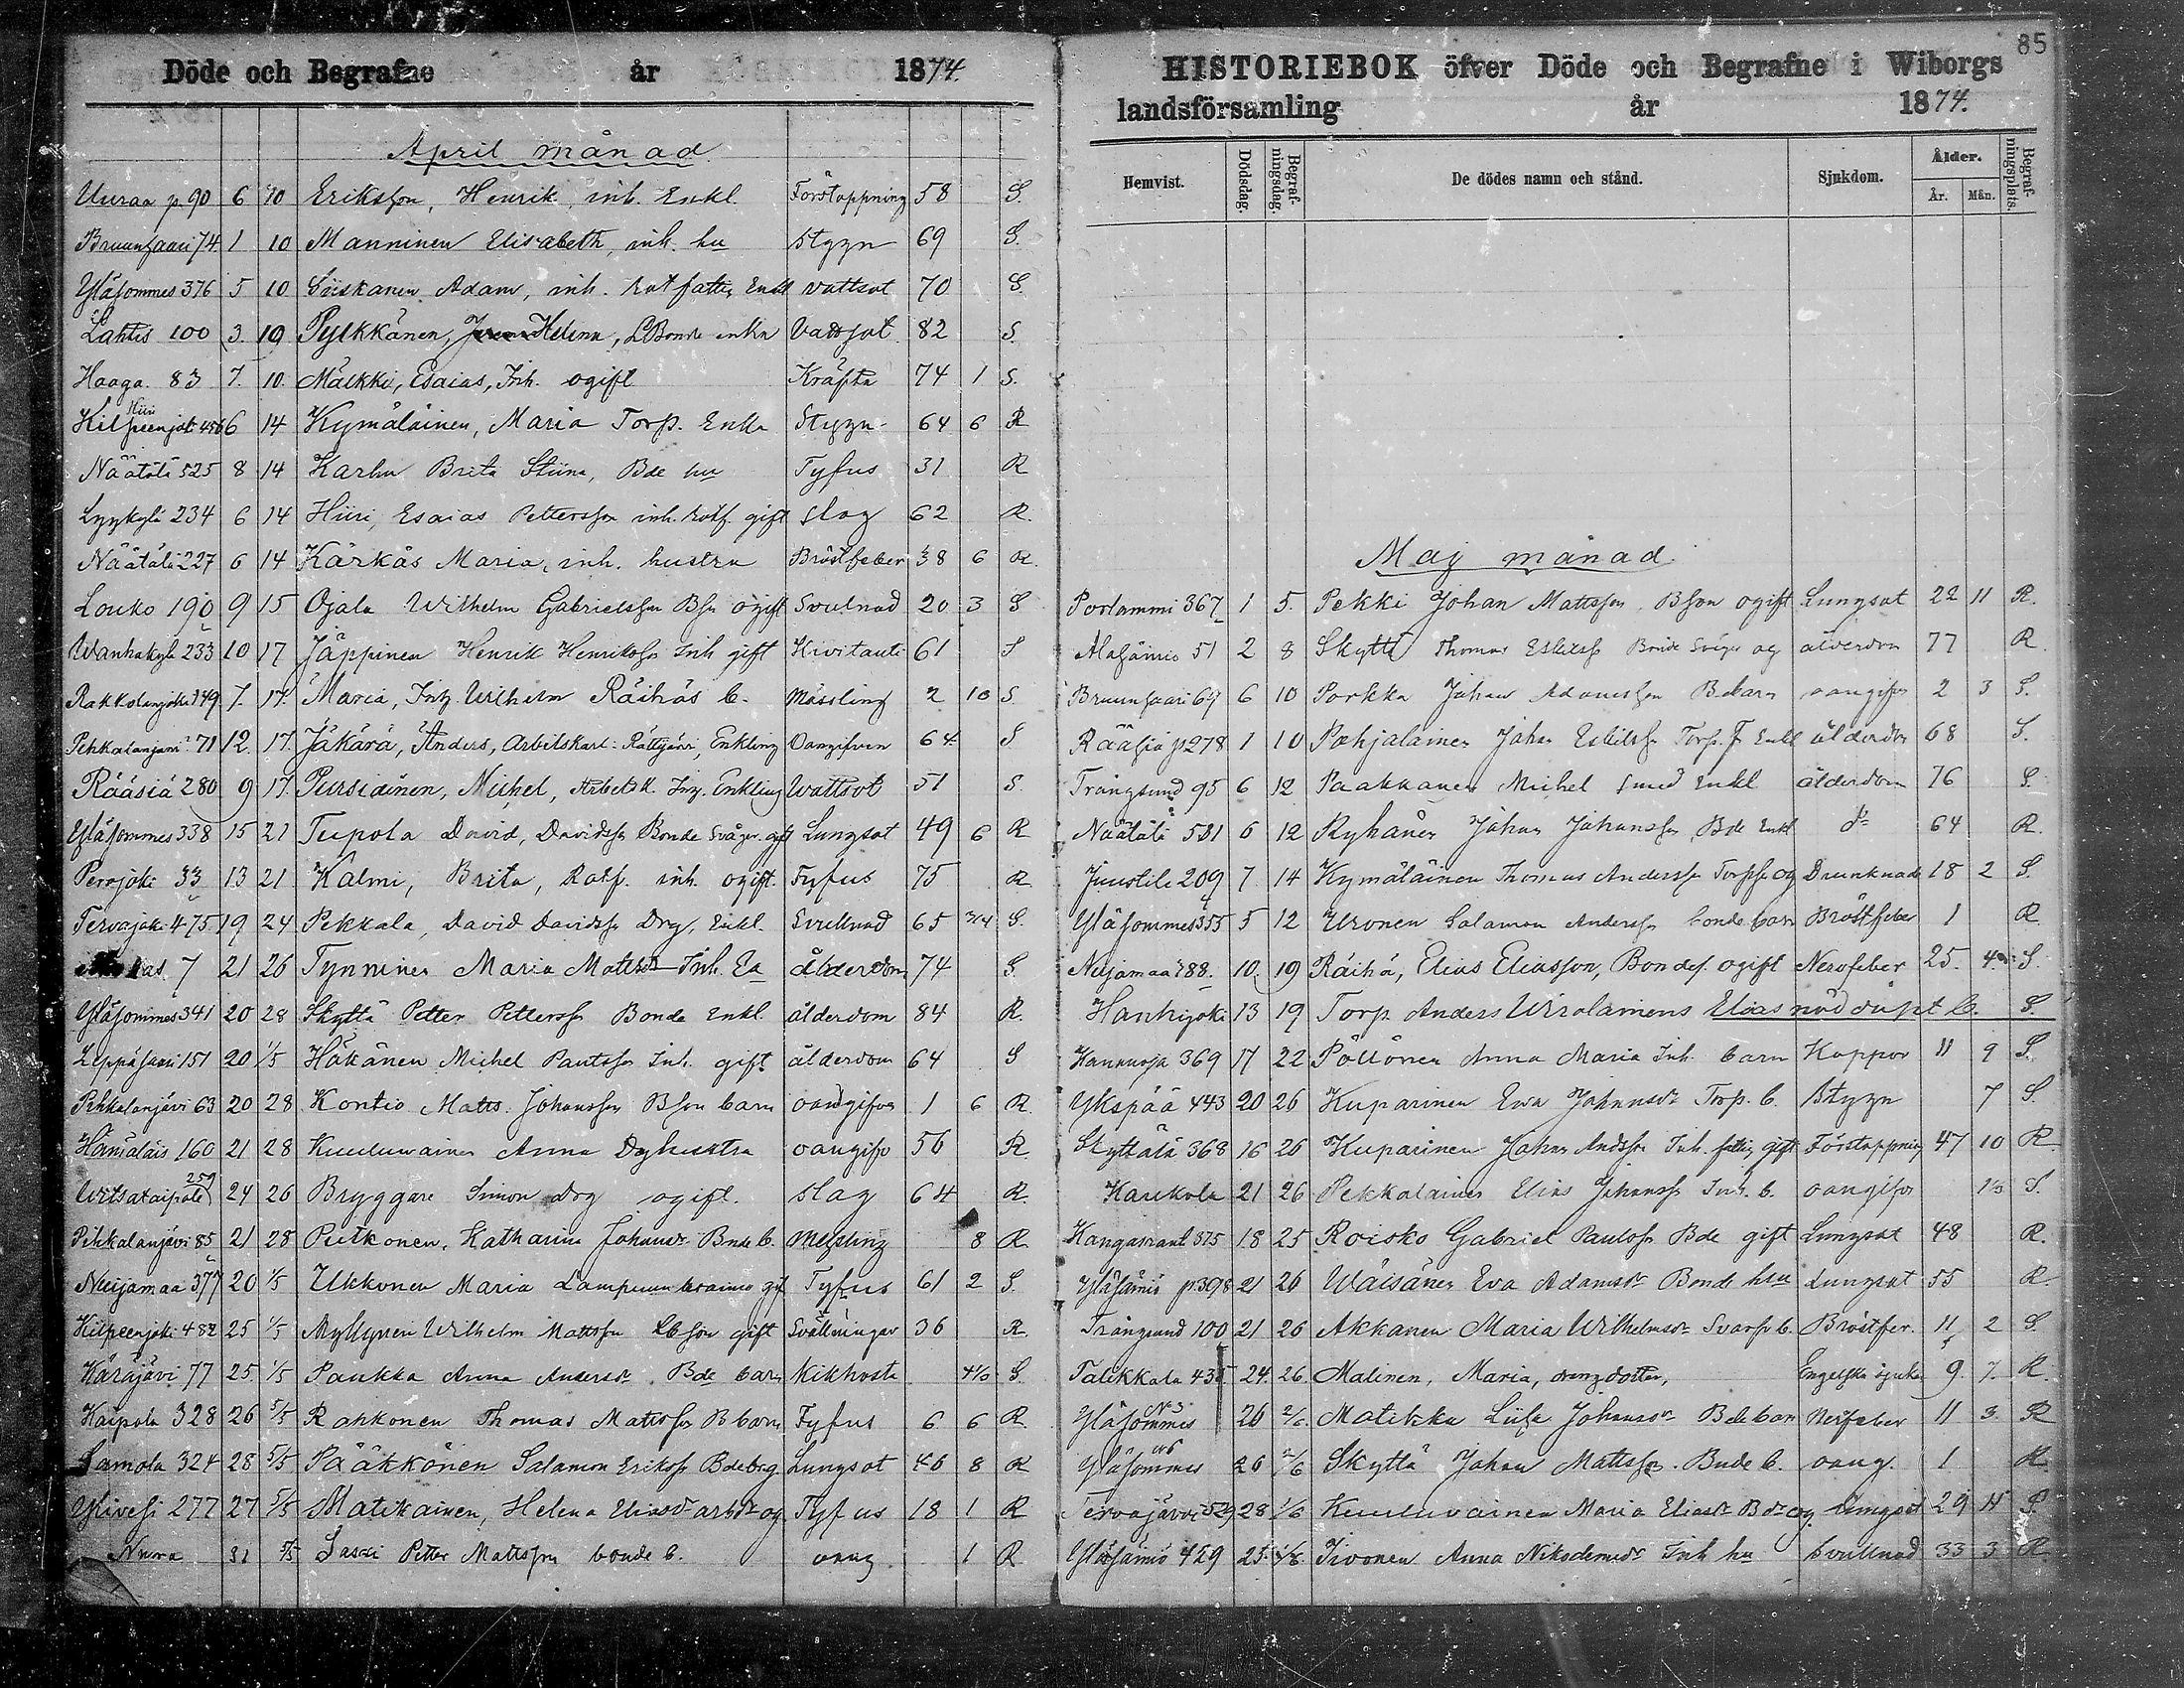 Döde och Begrafne år 1874.
April månad
Uuraa p 90 6 10 Eriksson, Henrik, inh. Enkl. Förstoppning 58 S.
Bruunsaari 74 1 10 Manninen Elisabeth, inh. hu Stygn 69 S.
Yläsommes 376 5 10 Siiskanen Adam, inh. rotfattig Enkl vattsot 70 S.
Lahtis 100 3. 10 Pylkkänen, Helena, LBonde enka Vattsot 82 S.
Haaga. 83 7. 10. Mälkki, Esaias, Inh. ogift Kräfta 74 1 S.
Kilpeenjoki 456 6 14 Kymäläinen, Maria Torp. Enka Stygn 64 6 R
Näätälä 525 8 14 Karhu Brita Stina, Bde hu Tyfus 31 R
Lyykylä 234 6 14 Hiiri, Esaias Pettersson inh. rotf. gift slag 62 R.
Näätälä 227 6 14 Kärkäs Maria, inh. hustru Bröstfeber 38 6 R.
Louko 190 9 15 Ojala Wilhelm Gabrielsson Bson ogift Svulnad 20 3 S
Wanhakylä 233 10 17 Jäppinen Henrik Henriksson Inh gift Kivitauti 61 S
Rakkolanjoki 149. 7. 17. Maria, Inh. Wilhelm Räihäs b. Mässling 2 10 S.
Pihkalanjärvi 71 12. 17. Jäkärä, Anders, Arbetskarl: Rättijärvi, Enkling Oangifven 64 S
Rääsiä 280 9 17. Pursiainen, Michel, Arbetsk. Inh. Enkling Wattsot 51 S.
Yläsommes 338 15 21 Tupola David, Davidsson Bonde Svåger gift Lungsot 49 6 R
Perojoki 33 13 21 Kalmi, Brita, Rotf. inh. ogift. Tyfus 75 R
Tervajoki 475. 19 24 Pekkala, David Davidsson Drg, Enkl. Svullnad 65 S.
7 21 26 Tynninen Maria Mattsdr Inh. Ea ålderdom 74 S.
Yläsommes 341 20 28 Skyttä Petter Pettersson Bonde Enkl. ålderdom 84 R.
Leppäsaari 151 20 1/5 Häkänen Michel Paulsson Inh. gift ålderdom 64 S
Pihkalanjärvi 63 20 28 Kontio Matts. Johansson Bson barn oangifven 1 6 R.
Hämäläis 160 21 28 Kuuluwainen Anna Drghustru oangifv 56 R.
259
24 26 Bryggare Simon drg ogift. slag 64 R.
Pihkalanjärvi 85 21 28 Putkonen, Katharina Johansdr Bnde b. Messling 8 R.
Nuijamaa 377 20 1/5 Ukkonen Maria gift Tyfus 61 2 S.
Kilpeenjoki 482 25 1/5 Myllynen Wilhelm Mattsson LBson gift Svällningar 36 R
Kärsjärvi 77 25. 1/5 Paukka Anna Andersdr Bde barn Kikhosta S.
Kaipola 328 26 5/5 Rahkonen Thomas Mattsson B barn Tyfus 6 6 R.
Samola 324 28 5/5 Pääkkönen Salamon Eriksson Lungsot 46 8 R
Ykivesi 277 27 5/5 Matikainen, Helena Eliasdr og Tyfus 18 1 R
31 5/5 Petter Mattsson bonde b. oang 1 R
85
HISTORIEBOK öfver Döde och Begrafne i Wiborgs
landsförsamling år 1874.
Hemvist. Dödsdag. Begrafningsdag. De dödes namn och stånd. Sjukdom. Ålder. År. Mån. Begrafningsplats.
Maj månad.
Porlammi 367 1 5. Pekki Johan Mattsson, Bson ogift Lungsot 22 11 R.
Alasäiniö 51 2 8 Skyttä Thomas Eskelss Bonde Svåger og ålderdom 77 R.
Bruunsaari 69 6 10 Porkka Johan Adamsson B.barn oangifv 2 3 S.
Rääsiä p 278 1 10 Pohjalainen Johan Eskelsson Torp. F Enkl ålderdom 68 S.
Trångsund 95 6 12 Paakkanen Michel smed Enkl ålderdom 76 S.
Näätälä 581 6 12 Ryhänen Johan Johansson Bde Enkl do 64 R.
Juustila 209 7 14 Kymäläinen Thomas Andersson Torpson og Drunknade 18 2 S.
Yläsommes 355 5 12 Uronen Salamon Andersson bonde barn Bröstfeber 1 R
Nuijamaa 88. 10. 19 Räihä, Elias Eliasson, Bondes. ogift Nervfeber 25. 4 S.
Hanhijoki 13 19 Torp. Anders Wirolainens Elias nöd döpt b. S.
Hannuspa 369 17 22 Pöllönen Anna Maria Inh. barn Koppor 11 9 S.
Ykspää 443 20 26 Kuparinen Eva Johansdr Torp. b. Stygn 7 S.
Skyttälä 368 16 26 Kuparinen Johan Andsson Inh. fattig gift Förstoppning 47 10 R
Karikola 21 26 Pekkalainen Elias Johansson Inh. b. oangifv S.
Kangasrant 375 18 25 Roisko Gabriel Paulsson Bde gift Lungsot 48 R.
Yläsäiniö p. 398 21 26 Wäisänen Eva Adamsdr Bonde hu Lungsot 55 R
Trångsund 100 21 26 Akkanen Maria Wilhelmsdr Svarf b. Bröstfer. 11 2 S.
Talikkala 435 24. 26. Malinen, Maria, drengdotter, Engelska sjukan 9. 7. R.
No 3
Yläsommes 26 2/6. Matikka Liisa Johansdr Bde barn Nerffeber 11 3 R
Yläsommes 26 2/6 Skyttä Johan Mattsson. Bnde b. oang. 1 R.
Tervajärvi 529 28 1/6 Kuuluvainen Maria Eliasdr Bdr og Lungsot 29 11 S.
Yläsäiniö 429 25. Iivonen Anna Nikodemusdr Inh hu Svullnad 33 3 R